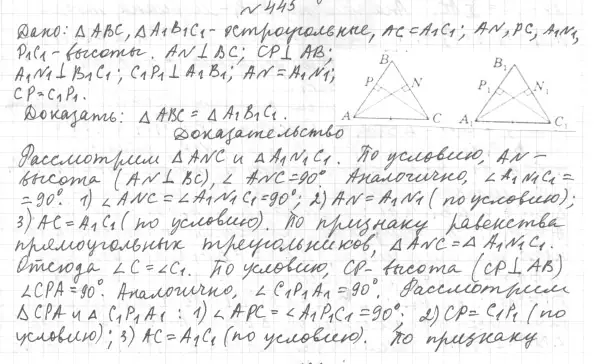 №445
Дано: △ABC, △A1B1C1 - остроугольные, AC=A1C1; AN, PC, A1N1,
P1C1 - высоты. AN⊥BC; CP⊥AB;
A1N1⊥B1C1; C1P1⊥A1B1; AN=A1N1;
CP=C1P1.
Доказать: △ABC=△A1B1C1.
B
P N
A C
B1
P1 N1
A1 C1
Доказательство
Рассмотрим △ANC и △A1N1C1. По условию, AN -
высота (AN⊥BC), ∠ANC=90°. Аналогично, ∠A1N1C1=
=90°. 1) ∠ANC=∠A1N1C1=90°; 2) AN=A1N1 (по условию);
3) AC=A1C1 (по условию). По признаку равенства
прямоугольных треугольников, △ANC=△A1N1C1.
Отсюда ∠C=∠C1. По условию, CP - высота (CP⊥AB)
∠CPA=90°. Аналогично, ∠C1P1A1=90°. Рассмотрим
△CPA и △C1P1A1: 1) ∠APC=∠A1P1C1=90°; 2) CP=C1P1 (по
условию); 3) AC=A1C1 (по условию). По признаку